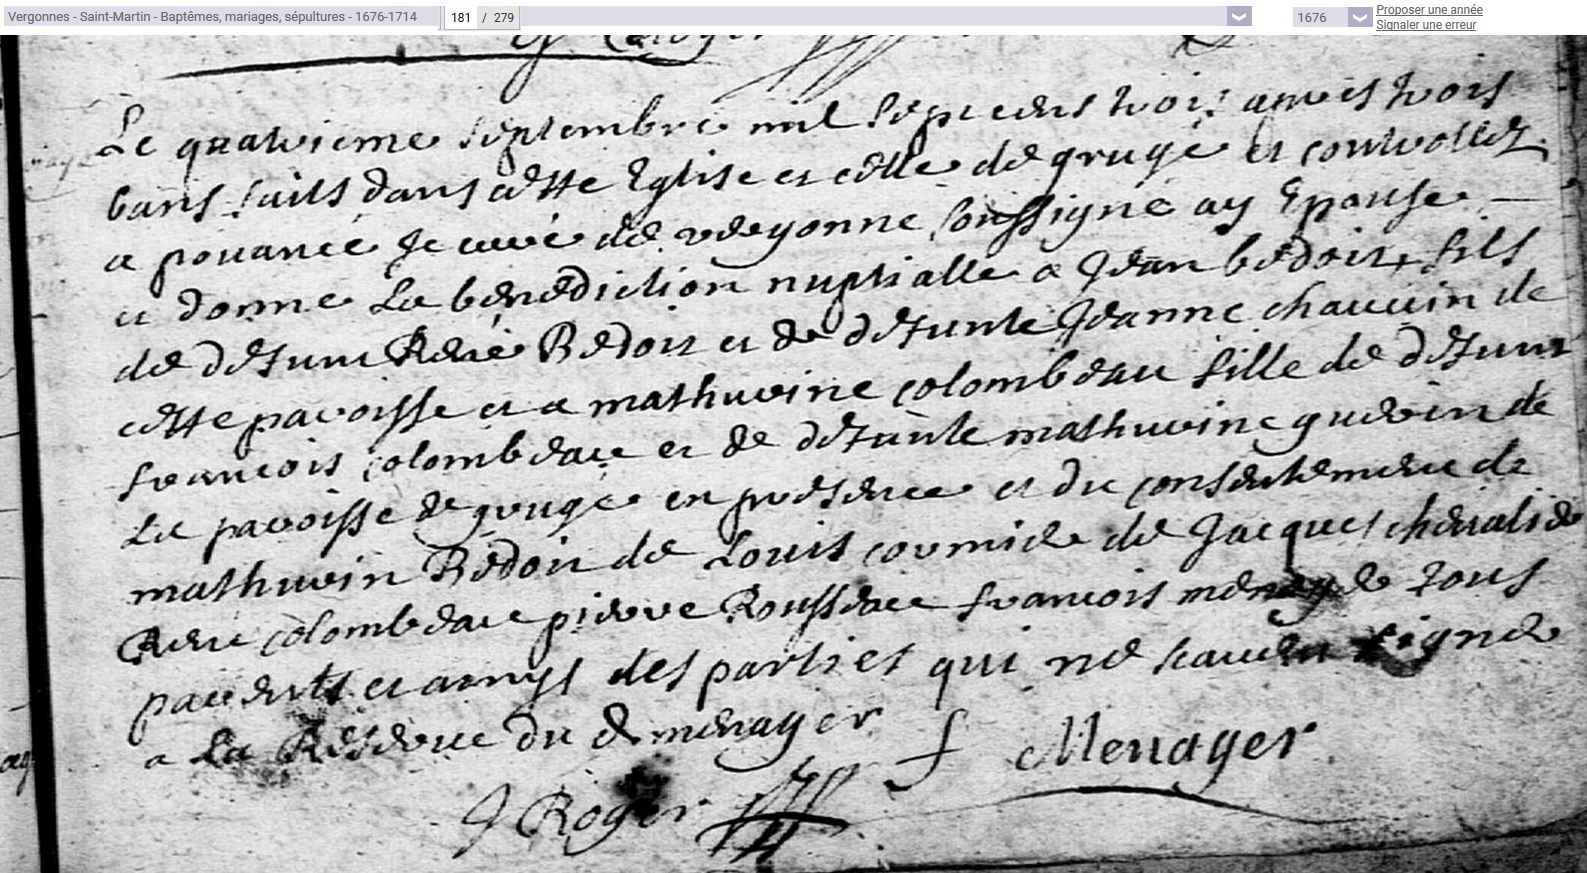 Vergonnes - Saint-Martin - Baptêmes, mariages, sépultures - 1676-1714 181 / 279 1676 Proposer une année
Signaler une erreur
Le quatrieme septembre mil sept cens trois apres trois
bans faits dans cette Eglise et celle de grugé et controllez
a pouancé Je curé de vergonne soussigné ay Epousé
et donné La benediction nuptialle a Jean bedoit fils
de defunt René Bedoit et de defunte Jeanne chauvin de
cette paroisse et a mathurine colombeau fille de defunt
francois colombeau et de defunte mathurine guerin de
La paroisse de grugé en presence et du consentement de
mathurin Bedoit de Louis cormier de Jacques chevalier
René colombeau pierre Rousseau francois menager tous
parents et amys des parties qui ne scavent signer
a La Reserve du d. menager f Menager
J Roger